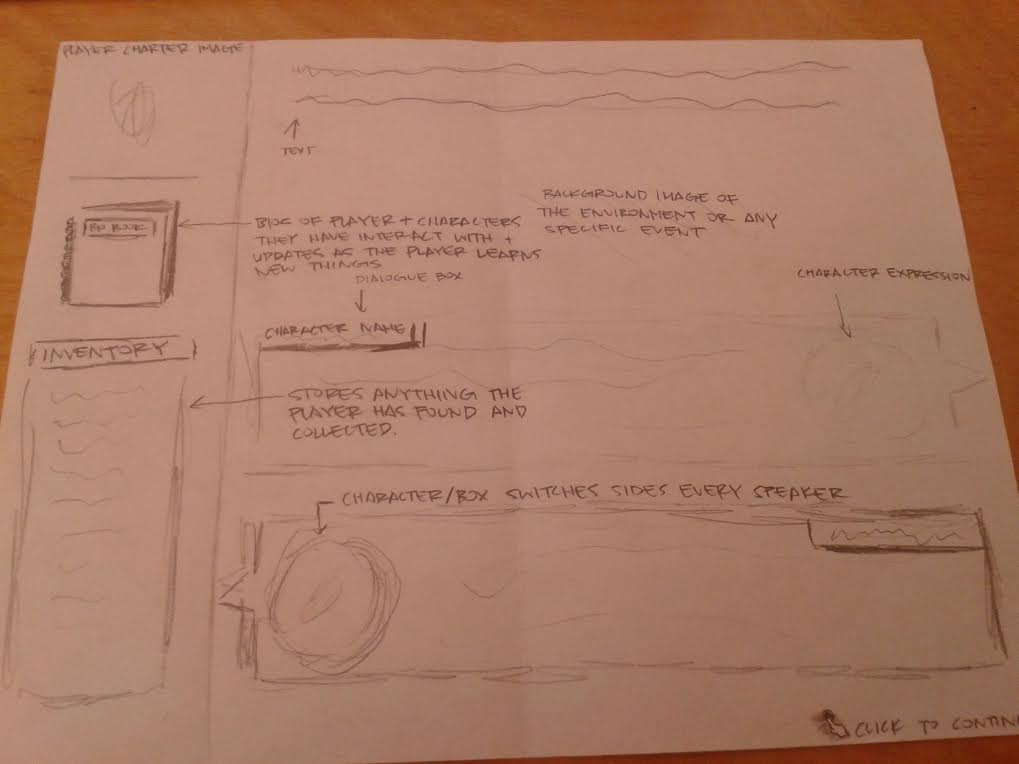 PLAYER CHARTER IMAGE
TEXT
BIO BOOK
BIOS OF PLAYER + CHARACTERS
THEY HAVE INTERACT WITH +
UPDATES AS THE PLAYER LEARNS
NEW THINGS
BACKGROUND IMAGE OF
THE ENVIRONMENT OR ANY
SPECIFIC EVENT
DIALOGUE BOX
CHARACTER EXPRESSION
CHARACTER NAME
INVENTORY
STORES ANYTHING THE
PLAYER HAS FOUND AND
COLLECTED.
CHARACTER/BOX SWITCHES SIDES EVERY SPEAKER
CLICK TO CONTIN